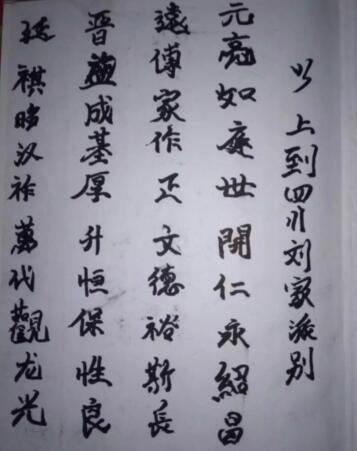 以上到四川刘家派别
元亮如庭世開仁永紹昌
遠傳家作正文德裕斯長
晋益成基厚升恒保性良
祺汉祚萬代觀龙光